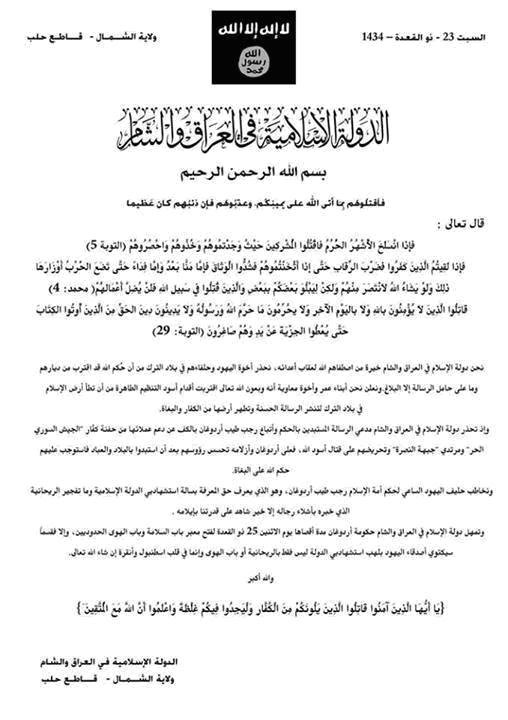 السبت 23 - ذو القعدة – 1434
لا إله إلا الله
الله
رسول
محمد
ولاية الشمال - قاطع حلب
الدولة الإسلامية في العراق والشام
بسم الله الرحمن الرحيم
فاقتلوهم بما أتى الله على يمينكم، وعذبوهم فإن ذنبهم كان عَظيما
قال تعالى :
فَإِذَا انْسَلَخَ الأَشْهُرُ الحُرُمُ فَاقْتُلُوا المُشْرِكِينَ حَيْثُ وَجَدْتمُوهُمْ وَخُذُوهُمْ وَاحْصُرُوهُمْ (التوبة 5)
فَإِذا لَقِيتُمُ الَّذِينَ كَفَرُوا فَضَرْبَ الرِّقابِ حَتَّى إِذا أَثْخَنْتُمُوهُمْ فَشُدُّوا الْوَثاقَ فَإِمَّا مَنًّا بَعْدُ وَإِمَّا فِداءً حَتَّى تَضَعَ الْحَرْبُ أَوْزارَها
ذلِكَ وَلَوْ يَشاءُ اللهُ لانْتَصَرَ مِنْهُمْ وَلكِنْ لِيَبْلُوَ بَعْضَكُمْ بِبَعْضٍ وَالَّذِينَ قُتِلُوا في سَبِيلِ اللهِ فَلَنْ يُضِلَّ أَعْمالَهُمْ( محمد: 4)
قَاتِلُوا الَّذِينَ لا يُؤْمِنُونَ بِاللهِ وَلا بِاليَوْمِ الآخِرِ وَلا يحُرِّمُونَ مَا حَرَّمَ اللهُ وَرَسُولُهُ وَلا يَدِينُونَ دِينَ الحَقِّ مِنَ الَّذِينَ أُوتُوا الكِتَابَ
حَتَّى يُعْطُوا الجِزْيَةَ عَنْ يَدٍ وَهُمْ صَاغِرُونَ (التوبة: 29)
نحن دولة الإسلام في العراق والشام خيرة من اصطفاهم الله لعقاب أعدائه، نحذر أخوة اليهود وحلفاءهم في بلاد الترك من أن حُكم الله قد اقترب من ديارهم
وما على حامل الرسالة إلا البلاغ.ونعلن نحن أبناء عمر وأخوة معاوية أنه وبعون الله تعالى اقتربت أقدام أسود التنظيم الطاهرة من أن تطأ أرض الإسلام
في بلاد الترك لتنشر الرسالة الحسنة وتطهر أرضها من الكفار والبغاة.
وإذ تحذر دولة الإسلام في العراق والشام مدعي الرسالة المستبدين بالحكم وأتباع رجب طيب أردوغان بالكف عن دعم عملائها من حفنة كفّار "الجيش السوري
الحر" ومرتدي "جبهة النصرة" وتحريضهم على قتال أسود الله، فعلى أردوغان وأزلامه تحسس رؤوسهم بعد أن استبدوا بالبلاد والعباد فاستوجب عليهم
حكم الله على البغاة.
ونخاطب حليف اليهود الساعي لحكم أمة الإسلام رجب طيب أردوغان، وهو الذي يعرف حق المعرفة بسالة استشهاديي الدولة الإسلامية وما تفجير الريحانية
الذي خبره بأشلاء رجاله إلا خير شاهد على قدرتنا بإيلامه .
ونمهل دولة الإسلام في العراق والشام حكومة أردوغان مدة أقصاها يوم الاثنين 25 ذو القعدة لفتح معبر باب السلامة وباب الهوى الحدوديين، وإلا فقسماً
سيكتوي أصدقاء اليهود بلهب استشهاديي الدولة ليس فقط بالريحانية أو باب الهوى وإنما في قلب اسطنبول وأنقرة إن شاء الله تعالى.
والله أكبر
{يَا أَيُّهَا الَّذِينَ آمَنُوا قَاتِلُوا الَّذِينَ يَلُونَكُمْ مِنَ الْكُفَّارِ وَلْيَجِدُوا فِيكُمْ غِلْظَةً وَاعْلَمُوا أَنَّ اللهَ مَعَ الْمُتَّقِينَ }
الدولة الإسلامية في العراق والشام
ولاية الشمال - قاطع حلب